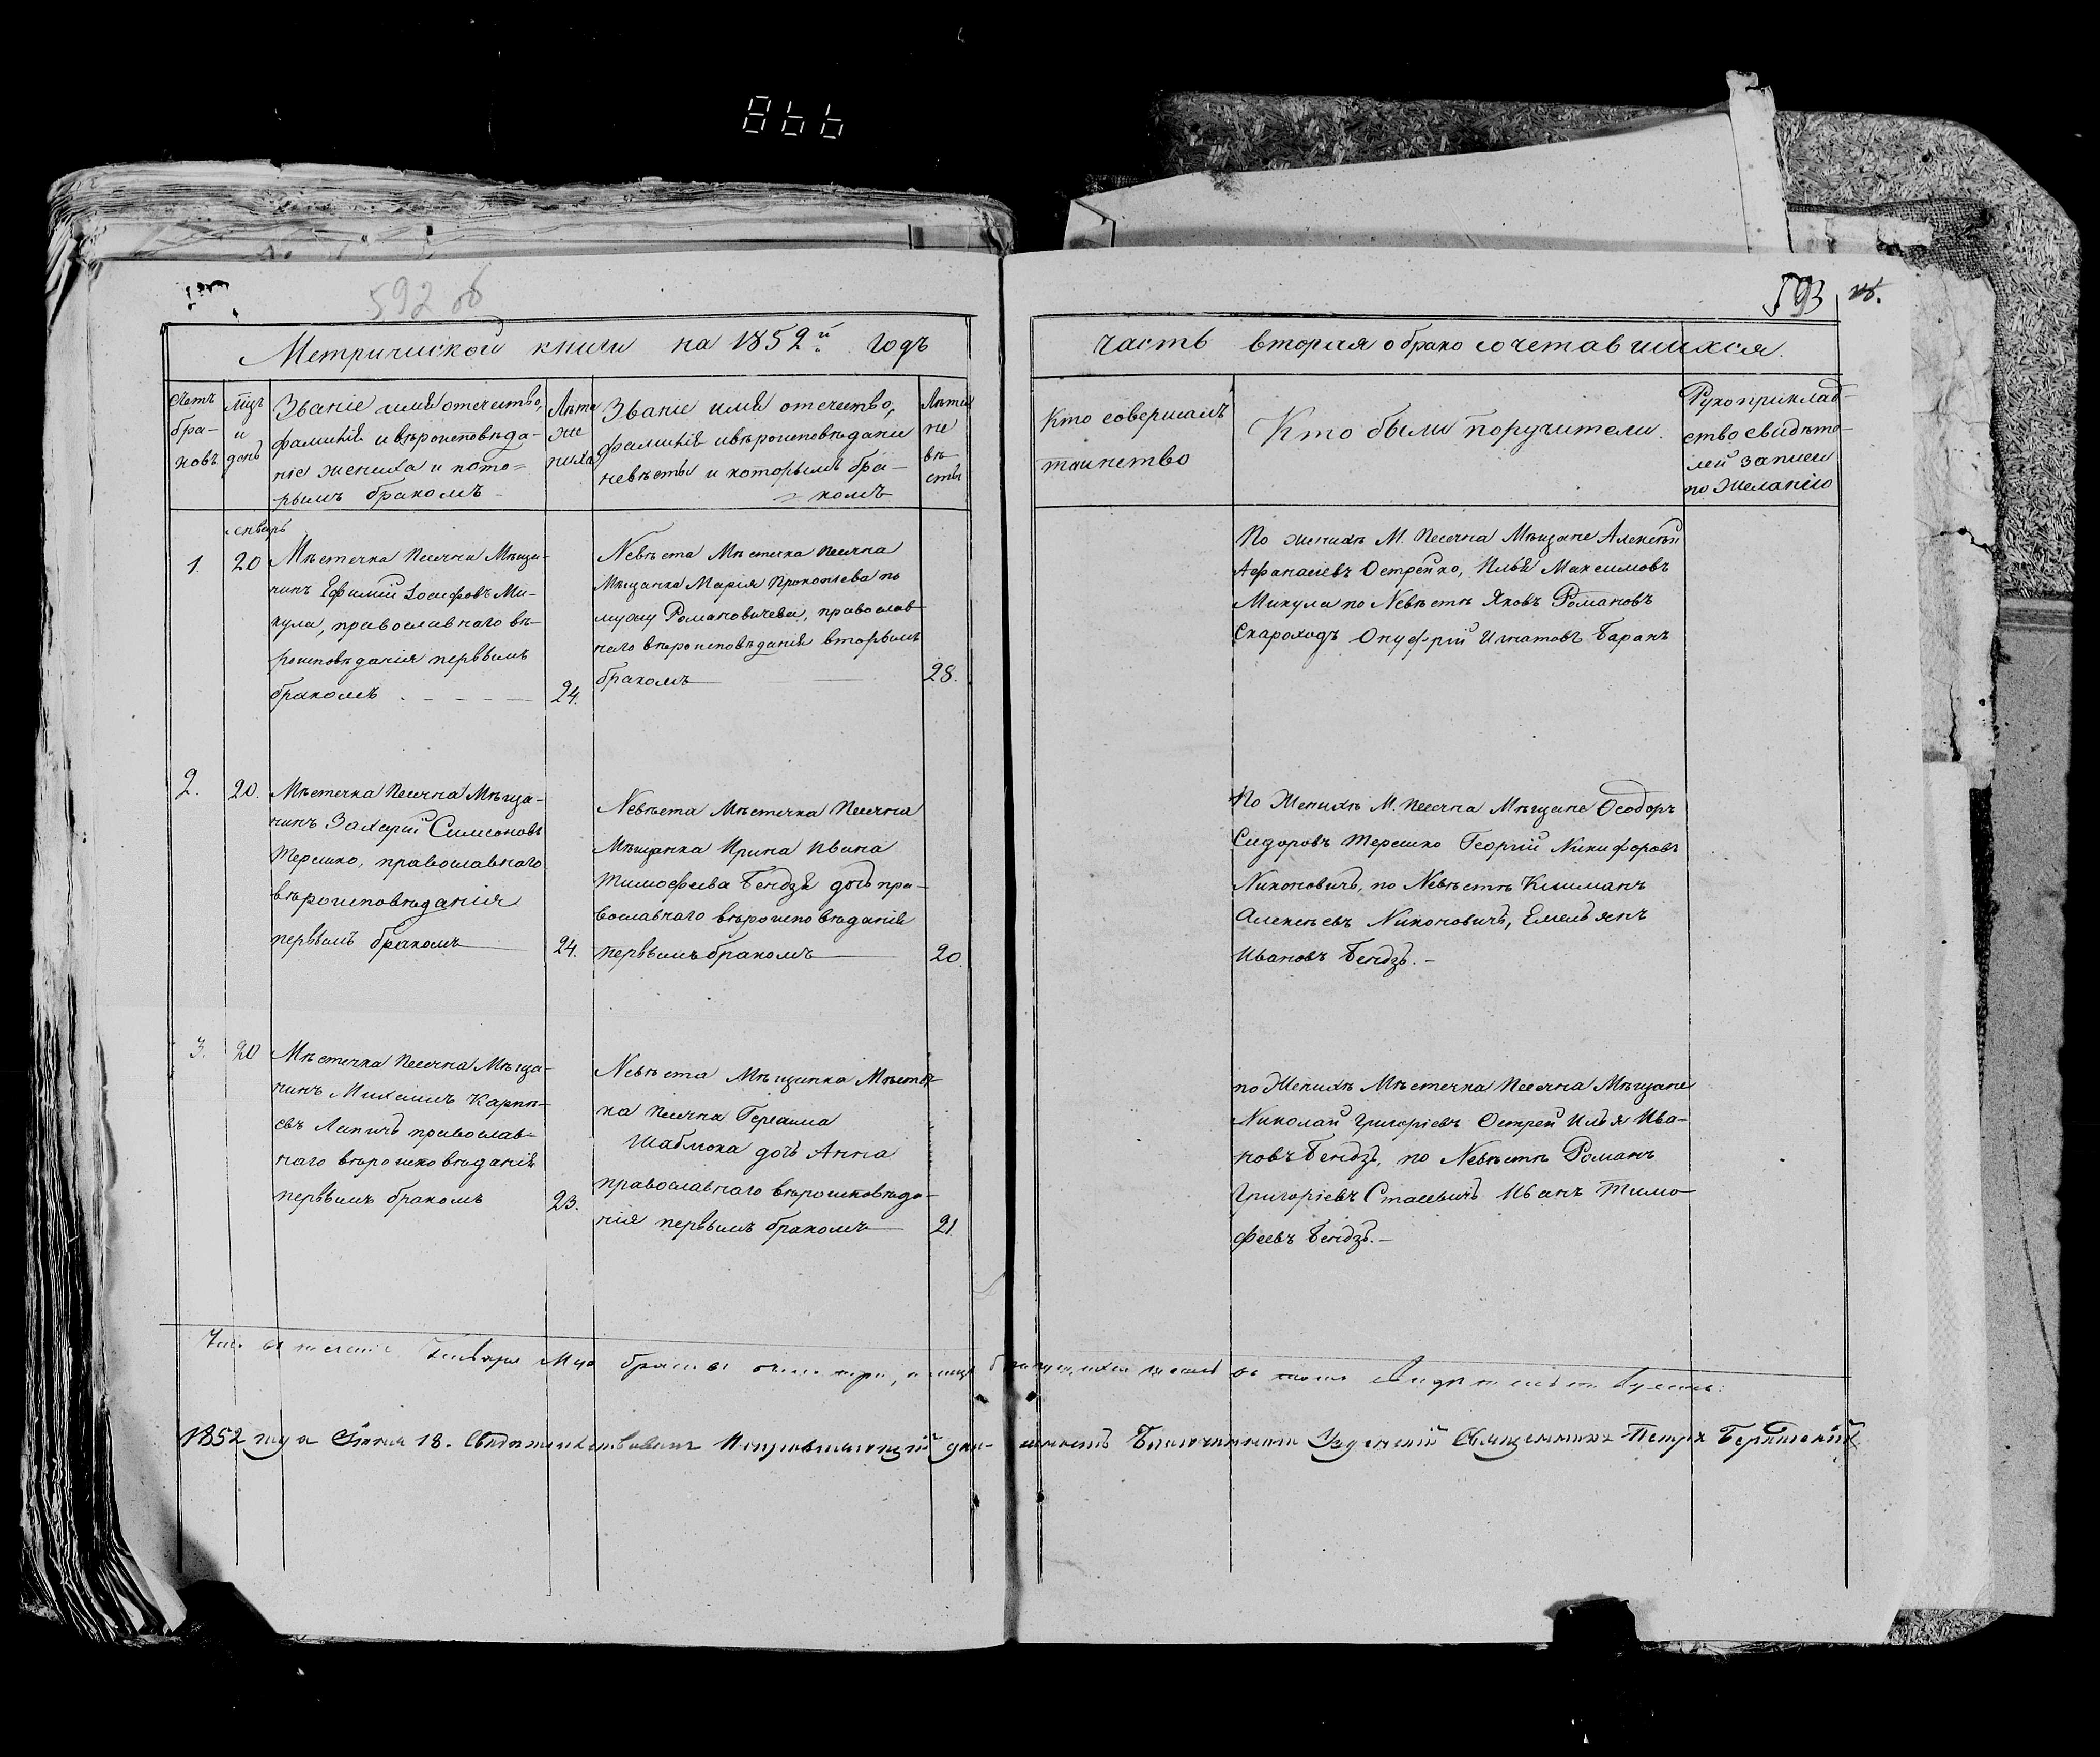 866
592 об
593
Метрической книги на 1852й годъ
часть вторая о брако сочетавшихся.
Счетъ бра-ковъ
мцъ и день
Званіе имя отечество,
фамилія и вѣроисповѣда-
ніе жениха и кото=
рымъ бракомъ
Лѣта же ниха
Званіе имя отечество,
фамилія и вѣроисповѣданіе
невѣсты и которымъ бра-
комъ
Лѣта не вѣ сты
Кто совершалъ
таинство
Кто были поручители.
Рукоприклад-
ство свидѣте-
лей записи
по желанію
январь
1. 20
Мѣстечка Песечна Мѣща-
нинъ Ефимій Іосифовъ Ми-
кула, православнаго вѣ-
роисповѣданія первымъ
бракомъ 24.
Невѣста Мѣстечка Песечна
Мѣщанка Марія Прокопіева по
мужу Романовичева, православ-
наго вѣроисповѣданія вторымъ
бракомъ 28.
По женихѣ М. Песечна Мѣщане Алексѣй
Афанасіевъ Острейко, Илья Максимовъ
Микула по Невѣстѣ Яковъ Романовъ
Скароходъ Онуфрій Игнатовъ Баранъ
2. 20.
Мѣстечка Песечна Мѣща-
нинъ Захарій Симеоновъ
Терешко, православнаго
вѣроисповѣданія
первымъ бракомъ 24.
Невѣста Мѣстечка Песечна
Мѣщанка Ирина Ивана
Тимофеева Бендзя дочь пра-
вославнаго вѣроисповѣданія
первымъ бракомъ 20.
По Женихѣ М. Песечна Мѣщане Ѳеодоръ
Сидоровъ Терешко Георгій Никифоровъ
Никоновичъ, по Невѣстѣ Климанъ
Алексѣевъ Никоновичъ, Емельянъ
Ивановъ Бендзь.
3. 20
Мѣстечка Песечна Мѣща-
нинъ Михаилъ Карпѣ-
евъ Лапичъ православ-
наго вѣроисповѣданія
первымъ бракомъ 23.
Невѣста Мѣщанка Мѣстеч-
ка Песечна Герасима
Шаблюка дочь Анна
православнаго вѣроисповѣда-
нія первымъ бракомъ 21.
по Женихѣ Мѣстечка Песечна Мѣщане
Николай Григоріевъ Острей Илья Ива-
новъ Бендзь, по Невѣстѣ Романъ
Григоріевъ Стасевичъ Иванъ Тимо
феевъ Бендзь.
Января браковъ три,
1852 года Іюня 18. Свидѣтельствовалъ Исправляющій должность Благочиннаго Узденскій Священникъ Петръ